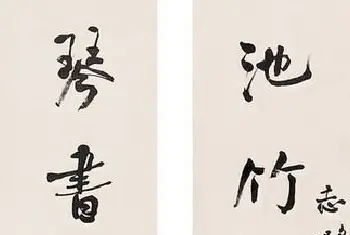 池竹
志
琴書